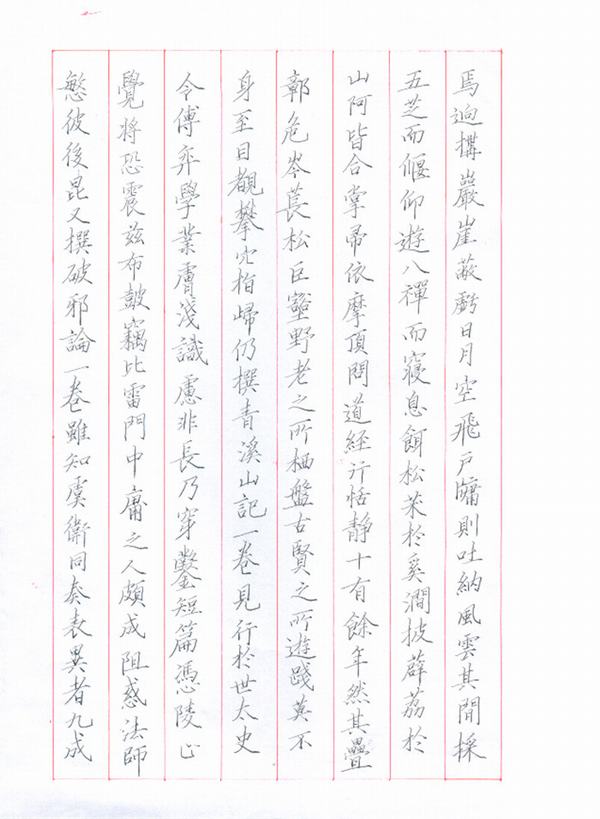 焉逈搆巖崖蔽虧日月空飛戸牖則吐納風雲其間採
五芝而偃仰遊八禪而寢息餌松茱於奚澗披薜荔於
山阿皆合掌歸依摩頂問道經行恬靜十有餘年然其疊
鄣危岑萇松巨壑野老之所栖盤古賢之所遊踐莫不
身至目覩攀穴指歸仍撰青溪山記一卷見行於世太史
令傅弈學業膚淺識慮非長乃穿鑿短篇憑陵正
覺將恐震茲布皷竊比雷門中庸之人頗成阻惑法師
慜彼後昆又撰破邪論一卷雖知虞衛同奏表異者九成